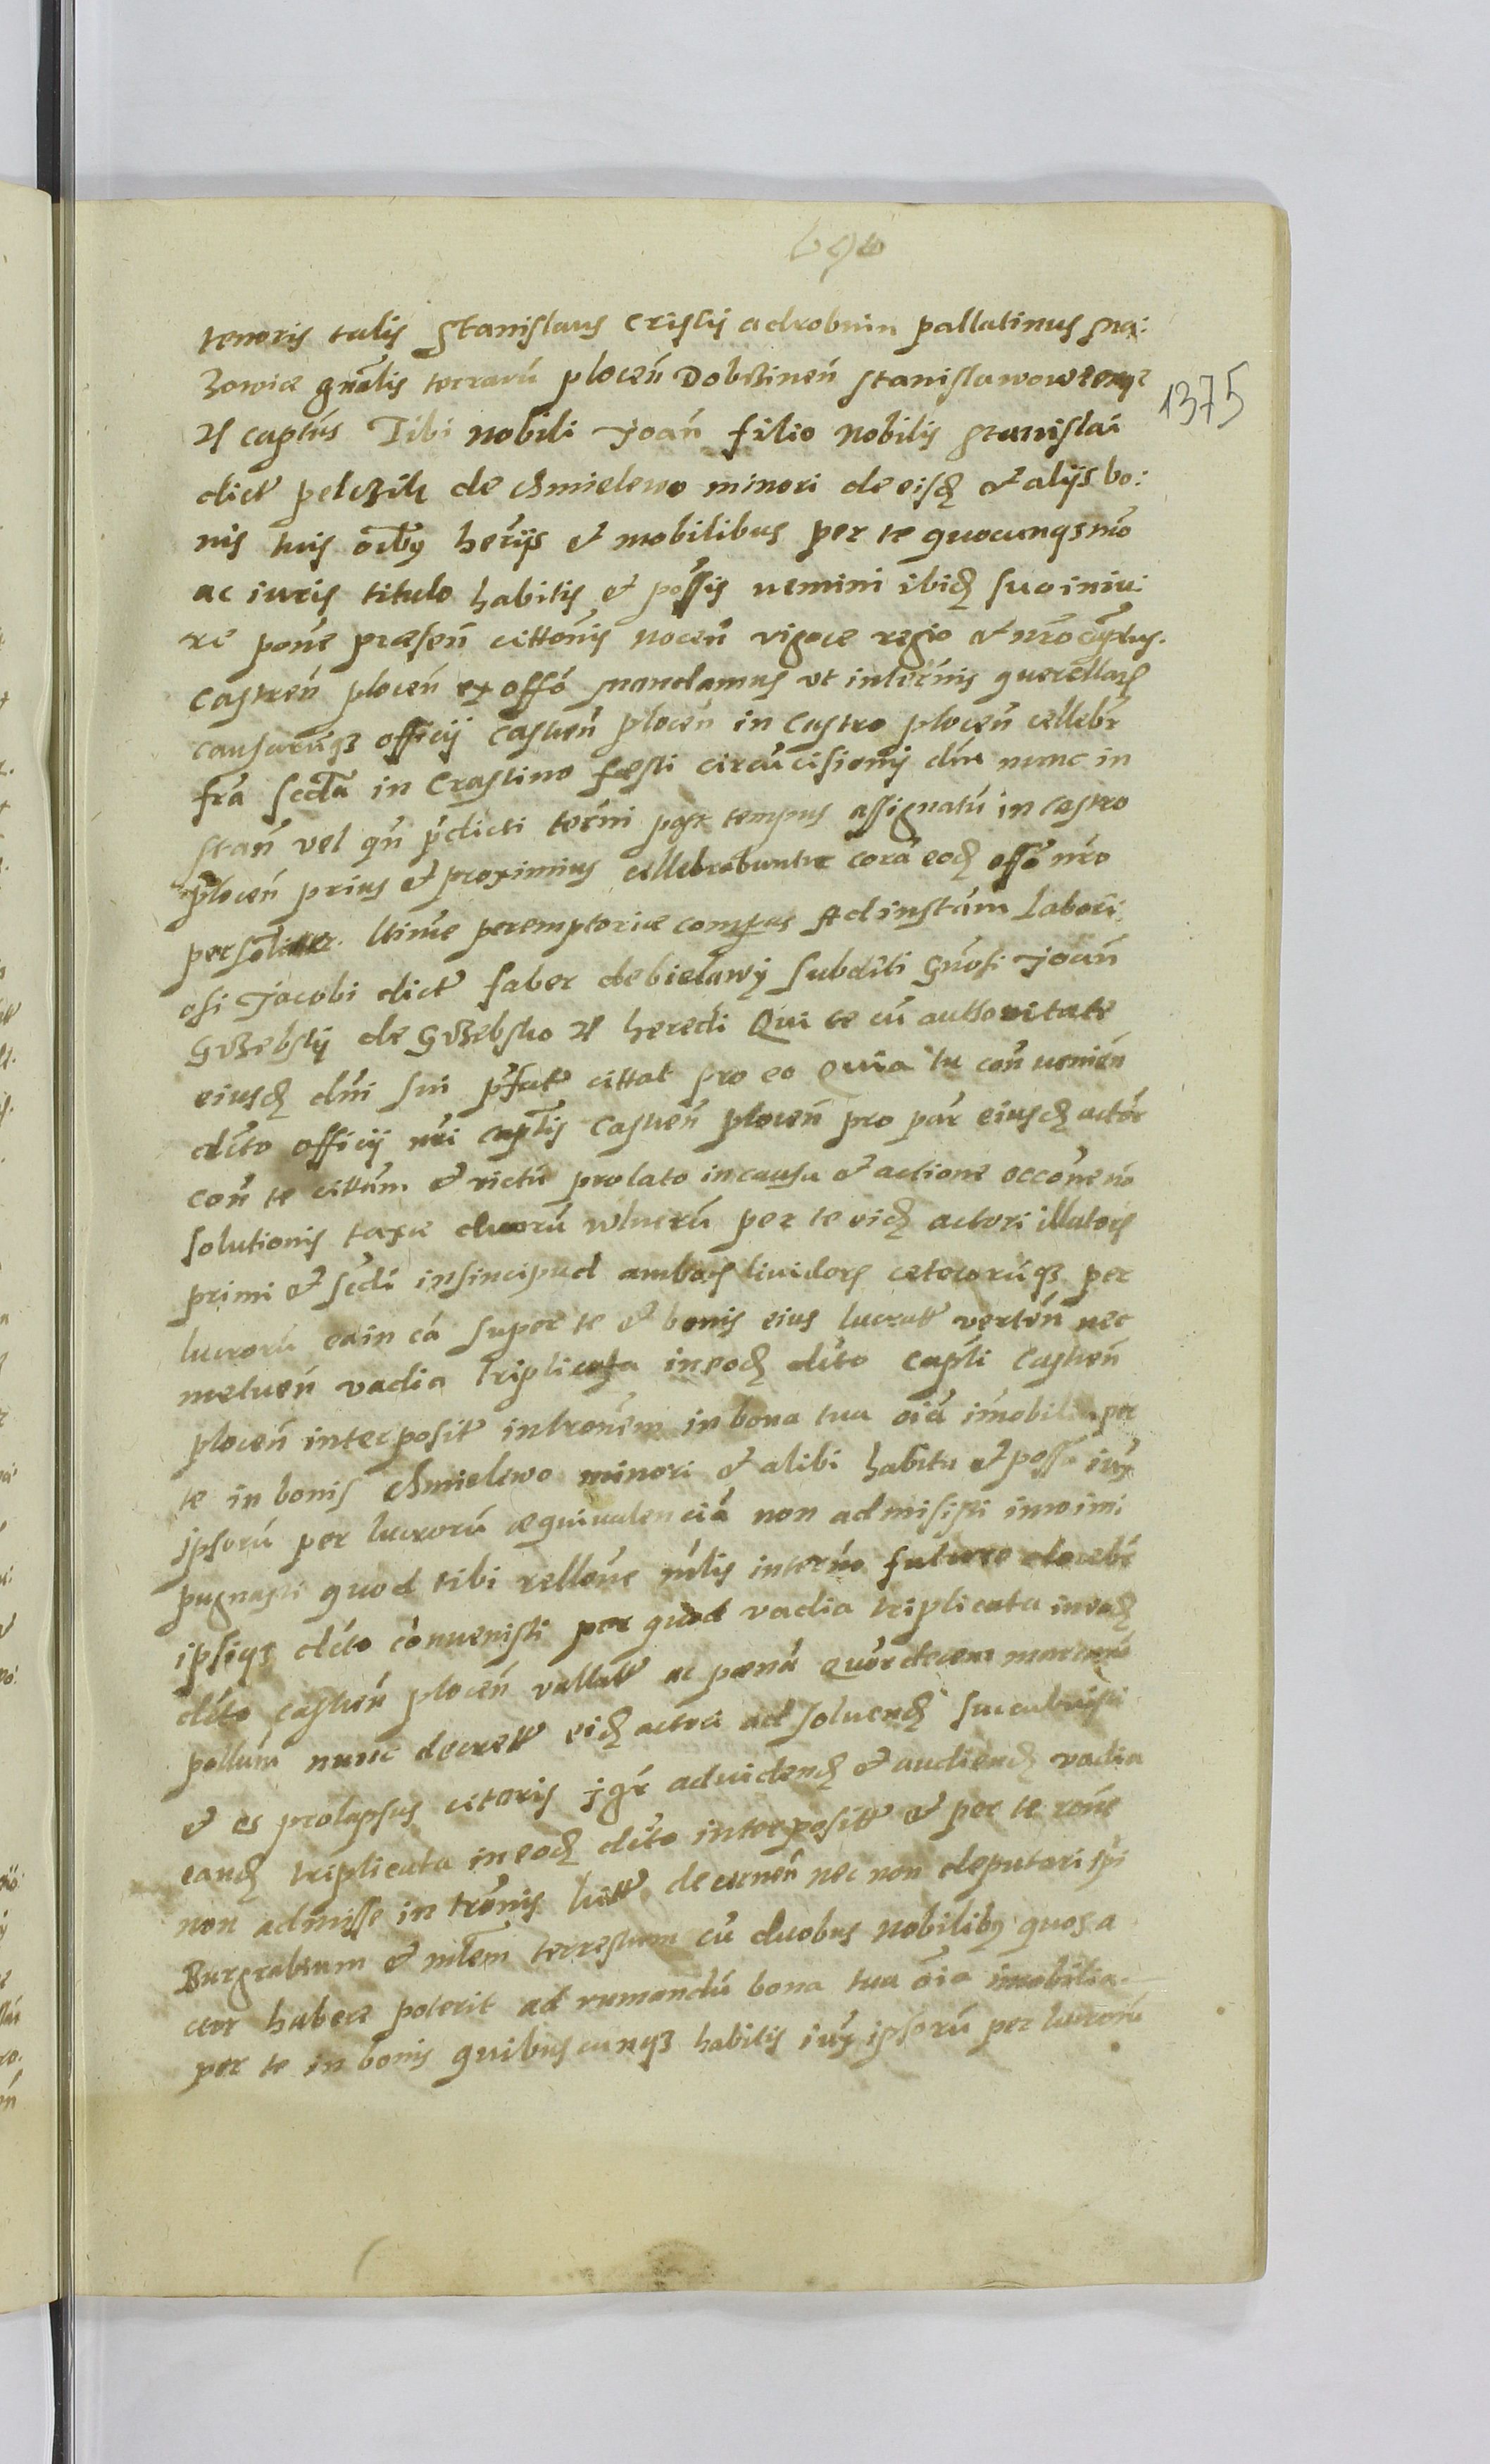 tenoris talis Stanislaus Criscii a drobnin pallatinus Ma:
zowiæ gnãlis terrarũ plocen̄ Dobrzinen̄
Zc captũs Tibi nobili Joan̄ filio nobilis Stanislai
dict pelczik de chmielewo minori de eisd et alijs bo:
nis tuis oĩbus herijs et mobilibus per te quocunqz mõ
ac iuris titulo habitis et possis nemini ibid suo iniu:
re pone præsen̄ cittonis nocen̄ vigore regio et nr̃o captus.
Castren̄ plocen̄ ex offõ mandamus vt in termis querellar
causarũqz officij Castren̄ plocen̄ in Castro plocen̄ cellebr
fra scda in Crastino fæsti circũcisionis dni nunc in
stan̄ vel qn̄ pdicti termi post tempus assignatũ in castro
plocen̄ prius et proximius cellebrabuntur corã eod offõ nr̃o
persõliter ltime peremptoriæ compas Ad instam labori
osi Jacobi dict faber de bielawy subditi Gnosi Joan̄
Grzebskij de Grzebsko Zc heredi Qui te cũ authoritate
eiusd dni sui pfat cittat pro eo Quia tu con uenien̄
dcto officij nri captis Castren̄ plocen̄ pro par eiusd actor
con te cittũm et victũ prolato in causa et actione occõne nõ
solutionis taxæ duorũ wlnerũ per te eid actori illator
primi et scdi in sincipud ambor liuidor cæterorũqz per
lucrorũ ea in cã super te et bonis eius lucratt verten̄ nec
metuen̄ vadia triplicata in eod dcto capti Castren̄
plocen̄ interposit intronem in bona tua oĩa imobilia per
te in bonis chmielewo minori et alibi habita et possa iux
ipsorũ per lucrorũ æquiualenciã non admisisti imo im:
pugnasti quod tibi rellone mlis in termo futuro docebr
ipsiqz dcto cõnuenisti per quod vadia triplicata in eod
dcto castren̄ plocen̄ vallatt ac pænã quordecem marcarũ
pollum nunc decrett eid actori ad soluend succubuisti
et es prolapsus cæteris igr ad uidend et audiend vadia
eand triplicata in eod dcto interposit et per te rone
non admisse in tronis luitt decernen̄ nec non deputari ipi
Burgrabium et mlem terrestrem cũ duobus nobilibus quos a
ctor habere poterit ad rumandũ bona tua oĩa imobilia
per te in bonis quibuscunqz habitis iux ipsorũ per lucrorũ
1375